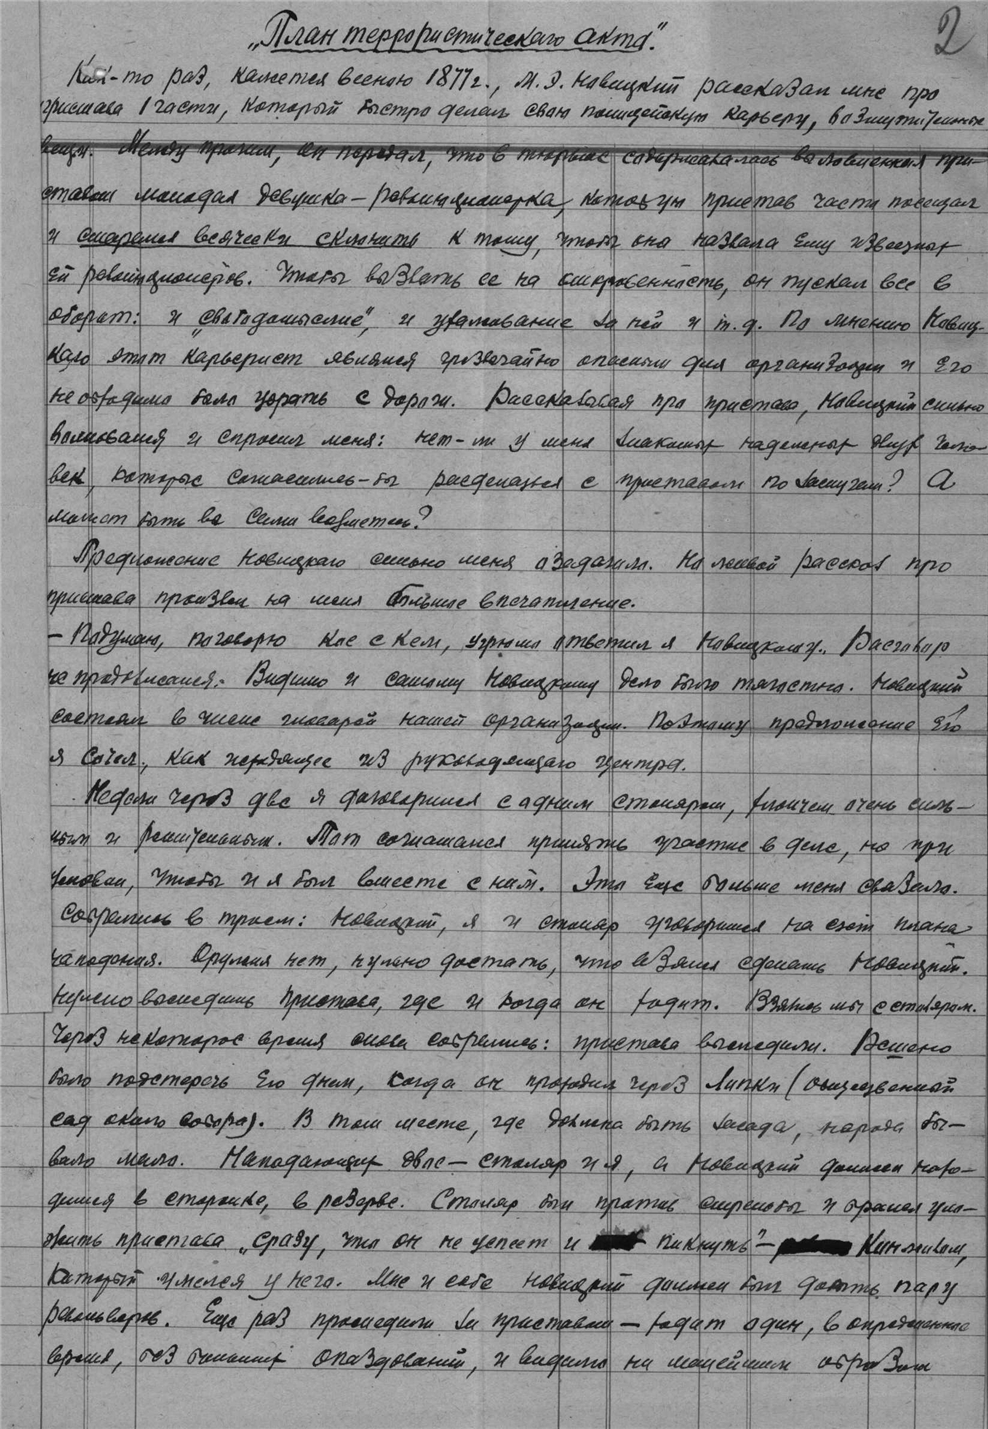 2
„План террористическаго акта".
Как-то раз, кажется весною 1877 г., М. Э. Новицкий рассказал мне про
пристава 1 части, который быстро делал свою полицейскую карьеру, возмутительные
вещи. Между прочим, он передал, что в тюрьме содержалась выловленная при-
ставом молодая девушка – революционерка, которую пристав части посещал
и старался всячески склонить к тому, чтобы она назвала ему известных
ей революционеров. Чтобы вызвать ее на откровенность, он пускал все в
оборот: и „свободомыслие", и ухаживание за ней и т. д. По мнению Новиц-
каго этот карьерист являлся чрезвычайно опасным для организации и его
необходимо было убрать с дороги. Рассказывая про пристава, Новицкий сильно
волновался и спросил меня: нет-ли у меня знакомых надежных двух чело-
век, которые согласились-бы расделаться с приставом по заслугам? А
может быть вы сами возметесь?
Предложение Новицкаго сильно меня озадачило. Но живой рассказ про
пристава произвел на меня большое впечатление.
– Подумаю, поговорю кое с кем, угрюмо ответил я Новицкому. Разговор
не продолжался. Видимо и самому Новицкому дело было тягостно. Новицкий
состоял в числе главарей нашей организации. Поэтому предложение его
я счел, как исходящее из руководящего центра.
Недели через две я договорился с одним столяром, очень силь-
ным и решительным. Тот соглашался принять участие в деле, но при
условии, чтобы и я был вместе с ним. Это еще больше меня связало.
Собрались в троем: Новицкий, я и столяр уговорились на счет плана
нападения. Оружия нет, нужно достать, что взялся сделать Новицкий.
Нужно выследить пристава, где и когда он ходит. Взялись мы с столяром.
Через некоторое время снова собрались: пристава выследили. Решено
было подстеречь его днем, когда он проходил через Липки (общественный
сад около собора). В том месте, где должна быть засада, народа бы-
вало мало. Нападающих двое – столяр и я, а Новицкий должен нахо-
диться в сторонке, в резерве. Столяр был против стрельбы и брался уло-
жить пристава „сразу, что он не успеет и пикнуть" – кинжалом,
который имелся у него. Мне и себе Новицкий должен был добыть пару
револьверов. Еще раз проследили за приставом – ходит один, в определенное
время, без больших опаздований, и видимо ни малейшим образом